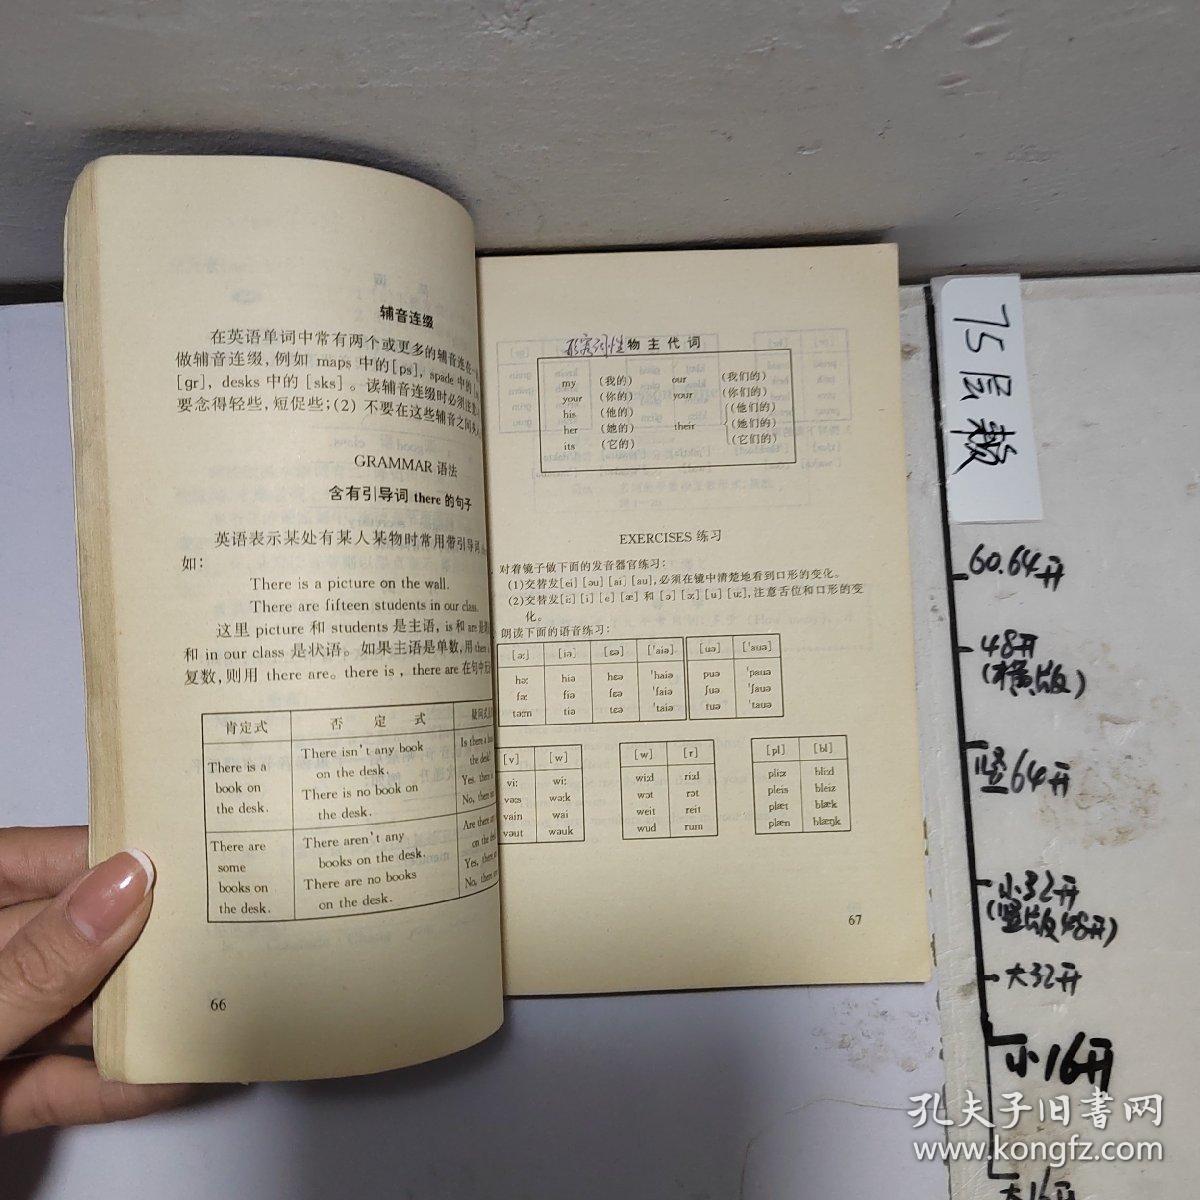 辅音连缀
在英语单词中常有两个或更多的辅音连在一
做辅音连缀,例如 maps 中的[ps], spade 中的
[gr], desks 中的 [sks]。读辅音连缀时必须注意
要念得轻些,短促些;(2) 不要在这些辅音之间
GRAMMAR 语法
含有引导词 there 的句子
英语表示某处有某人某物时常用带引导词
如:
There is a picture on the wall.
There are fifteen students in our class.
这里 picture 和 students 是主语, is 和 are 是
和 in our class 是状语。如果主语是单数,用
复数,则用 there are。there is , there are 在句中
肯定式 否 定 式 疑问式
There is a book on the desk.
There isn't any book on the desk.
There is no book on the desk.
Is there a
the desk?
Yes, there
No, there
There are some books on the desk.
There aren't any books on the desk.
There are no books on the desk.
Are there
on the
Yes, there
No, there
66
形容词性物主代词
my (我的) our (我们的)
your (你的) your (你们的)
his (他的) (他们的)
her (她的) their (她们的)
its (它的) (它们的)
EXERCISES 练习
对着镜子做下面的发音器官练习:
(1)交替发[ei] [əu] [ai] [au],必须在镜中清楚地看到口形的变化。
(2)交替发[i:] [i] [e] [æ] 和 [ə] [ɔ:] [u] [u:],注意舌位和口形的变
化。
朗读下面的语音练习:
[ə:] [iə] [ɛə] ['aiə] [uə] ['auə]
hə: hiə hɛə 'haiə puə 'pauə
fə: fiə fɛə 'faiə ʃuə 'ʃauə
tə:n tiə tɛə 'taiə tuə 'tauə
[v] [w]
vi: wi:
və:s wə:k
vain wai
vəut wəuk
[w] [r]
wi:d ri:d
wɔt rɔt
weit reit
wud rum
[pl] [bl]
pli:z bli:d
pleis bleiz
plæt blæk
plæn blæŋk
67
75层赖
60.64开
48开
(横版)
竖64开
小32开
(竖版48开)
大32开
小16开
大16开
孔夫子旧書网
www.kongfz.com